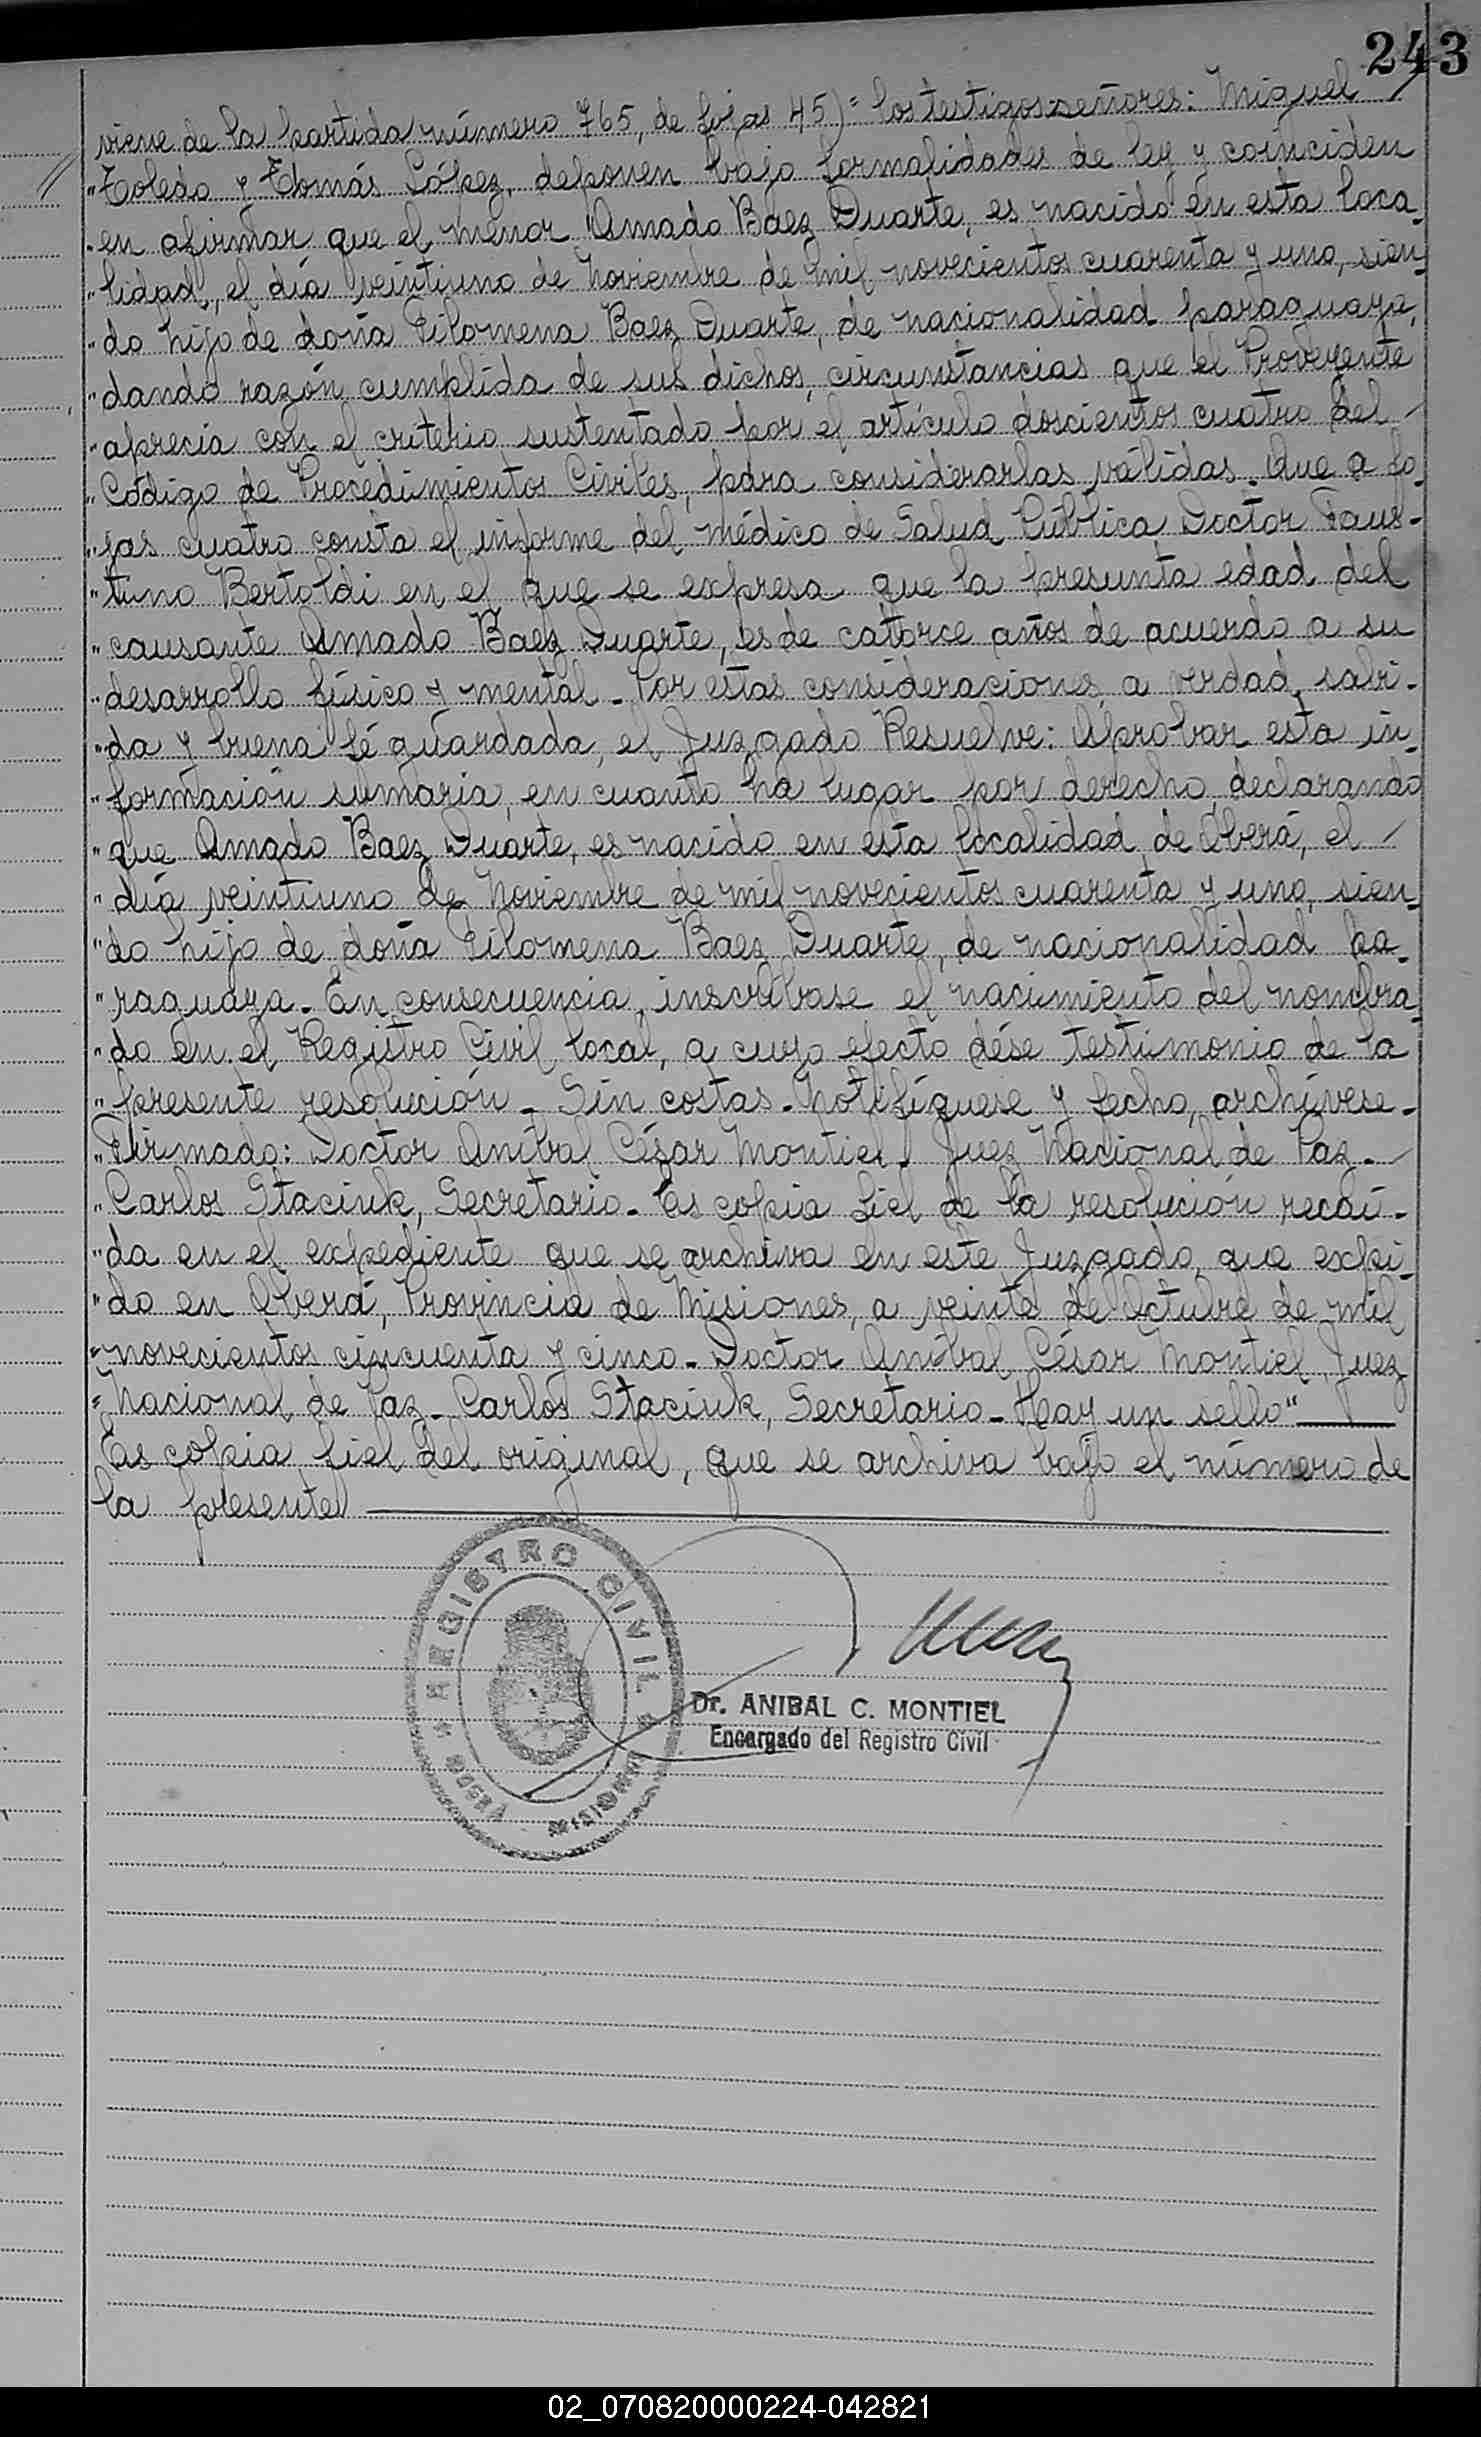 243
viene de la partida número 765, de fojas 45)" los testigos señores: Miguel /
// "Toledo y Tomás López, deponen bajo formalidades de ley y coinciden
"en afirmar que el menor Amado Baez Duarte, es nacido en esta loca-
"lidad, el día veintiuno de Noviembre de mil novecientos cuarenta y uno, sien-
"do hijo de doña Filomena Baez Duarte, de nacionalidad paraguaya,
"dando razón cumplida de sus dichos, circunstancias que el Proveyente
"aprecia con el criterio sustentado por el artículo doscientos cuatro del /
"Código de Procedimientos Civiles, para considerarlas válidas. Que a fo-
"jas cuatro consta el informe del médico de Salud Pública Doctor Faus-
"tino Bertoldi en el que se expresa que la presunta edad del
"causante Amado Baez Duarte, es de catorce años de acuerdo a su
"desarrollo físico y mental. Por estas consideraciones a verdad sabi-
"da y buena fé guardada, el Juzgado Resuelve: Aprobar esta in-
"formación sumaria, en cuanto ha lugar por derecho, declarando
"que Amado Baez Duarte, es nacido en esta localidad de Oberá, el /
"día veintiuno de Noviembre de mil novecientos cuarenta y uno, sien-
"do hijo de doña Filomena Baez Duarte, de nacionalidad pa-
"raguaya. En consecuencia, inscríbase el nacimiento del nombra-
"do en el Registro Civil local, a cuyo efecto dése testimonio de la
"presente resolución. Sin costas. Notifíquese y fecho, archívese.
"Firmado: Doctor Aníbal César Montiel. Juez Nacional de Paz. /
"Carlos Staciuk, Secretario. Es copia fiel de la resolución recaí-
"da en el expediente que se archiva en este Juzgado, que expi-
"do en Oberá, Provincia de Misiones, a veinte de Octubre de mil
"novecientos cincuenta y cinco. Doctor Aníbal César Montiel, Juez
"Nacional de Paz. Carlos Staciuk, Secretario. Hay un sello"
Es copia fiel del original, que se archiva bajo el número de
la presente
REGISTRO CIVIL
OBERA
MISIONES
Dr. ANIBAL C. MONTIEL
Encargado del Registro Civil
02_070820000224-042821